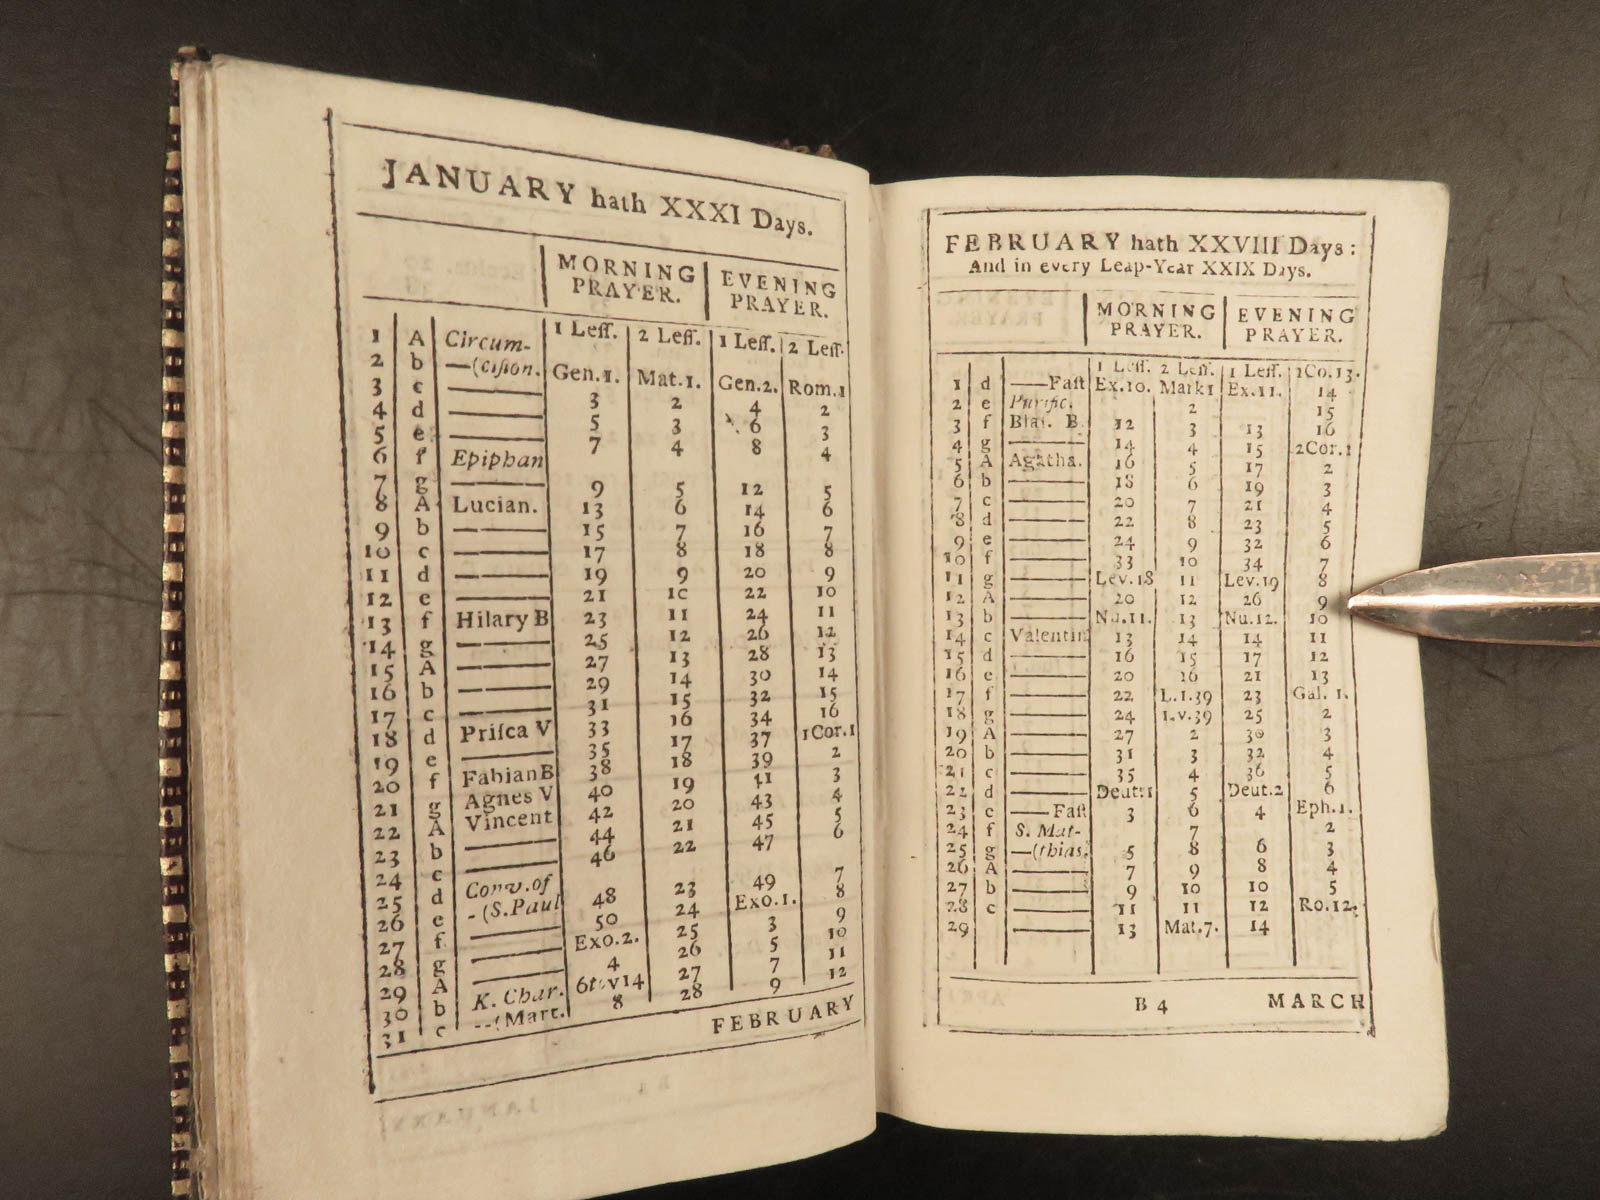 JANUARY hath XXXI Days.
MORNING PRAYER. EVENING PRAYER.
1 Leſſ. 2 Leſſ. 1 Leſſ. 2 Leſſ.
1 A Circum-
2 b —(ciſion. Gen.1. Mat.1. Gen.2. Rom.1
3 c —— 3 2 4 2
4 d —— 5 3 6 3
5 e —— 7 4 8 4
6 f Epiphan
7 g —— 9 5 12 5
8 A Lucian. 13 6 14 6
9 b —— 15 7 16 7
10 c —— 17 8 18 8
11 d —— 19 9 20 9
12 e —— 21 10 22 10
13 f Hilary B 23 11 24 11
14 g —— 25 12 26 12
15 A —— 27 13 28 13
16 b —— 29 14 30 14
17 c —— 31 15 32 15
18 d Priſca V 33 16 34 16
19 e —— 35 17 37 1Cor.1
20 f Fabian B 38 18 39 2
21 g Agnes V 40 19 41 3
22 A Vincent 42 20 43 4
23 b —— 44 21 45 5
24 c —— 46 22 47 6
25 d Conv. of
26 e -(S. Paul 48 23 49 7
27 f —— 50 24 Exo.1. 8
28 g —— Exo.2. 25 3 9
29 A —— 4 26 5 10
30 b K. Char. 6to v14 27 7 11
31 c --(Mart. 8 28 9 12
FEBRUARY
FEBRUARY hath XXVIII Days:
And in every Leap-Year XXIX Days.
MORNING PRAYER. EVENING PRAYER.
1 Leſſ. 2 Leſſ. 1 Leſſ.
1 d ——Faſt Ex.10. Mark1 Ex.11. 1Co.13.
2 e Purific. 2 14
3 f Blaſ. B. 12 3 13 15
4 g —— 14 4 15 16
5 A Agatha. 16 5 17 2Cor.1
6 b —— 18 6 19 2
7 c —— 20 7 21 3
8 d —— 22 8 23 4
9 e —— 24 9 32 5
10 f —— 33 10 34 6
11 g —— Lev.18 11 Lev.19 7
12 A —— 20 12 26 8
13 b —— Nu.11. 13 Nu.12. 9
14 c Valentin 13 14 14 10
15 d —— 16 15 17 11
16 e —— 20 16 21 12
17 f —— 22 L.1.39 23 13
18 g —— 24 1.v.39 25 Gal. 1.
19 A —— 27 2 30 2
20 b —— 31 3 32 3
21 c —— 35 4 36 4
22 d —— Deut.1 5 Deut.2 5
23 e —Faſt 3 6 4 6
24 f S. Mat- 7 Eph.1.
25 g —(thias. 5 8 6 2
26 A —— 7 9 8 3
27 b —— 9 10 10 4
28 c —— 11 11 12 5
29 —— 13 Mat.7. 14 Ro.12.
B 4 MARCH